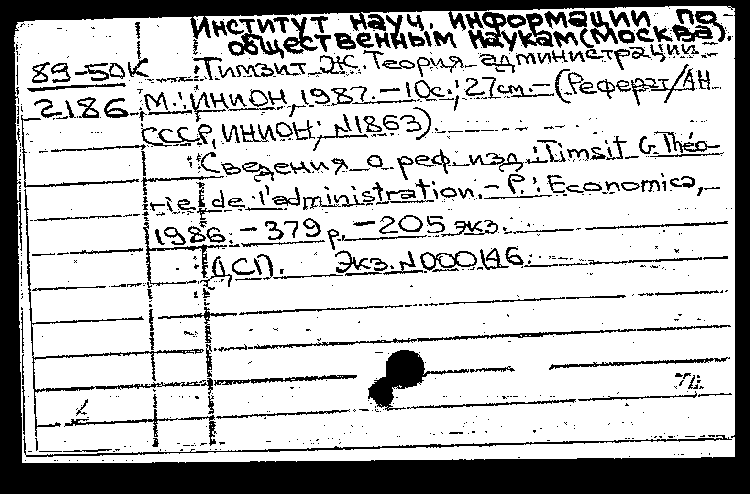 Институт науч. информации по
общественным наукам (Москва).
89-50К Тимзит Ж. Теория администрации.
2186 М.: ИНИОН, 1987. - 10с.; 27см. - (Реферат/АН
СССР, ИНИОН; N1863).
Сведения о реф. изд.: Timsit G. Théo-
rie de l'administration. - P.: Economica,
1986. - 379 p. - 205 экз.
ДСП. Экз. N000146.